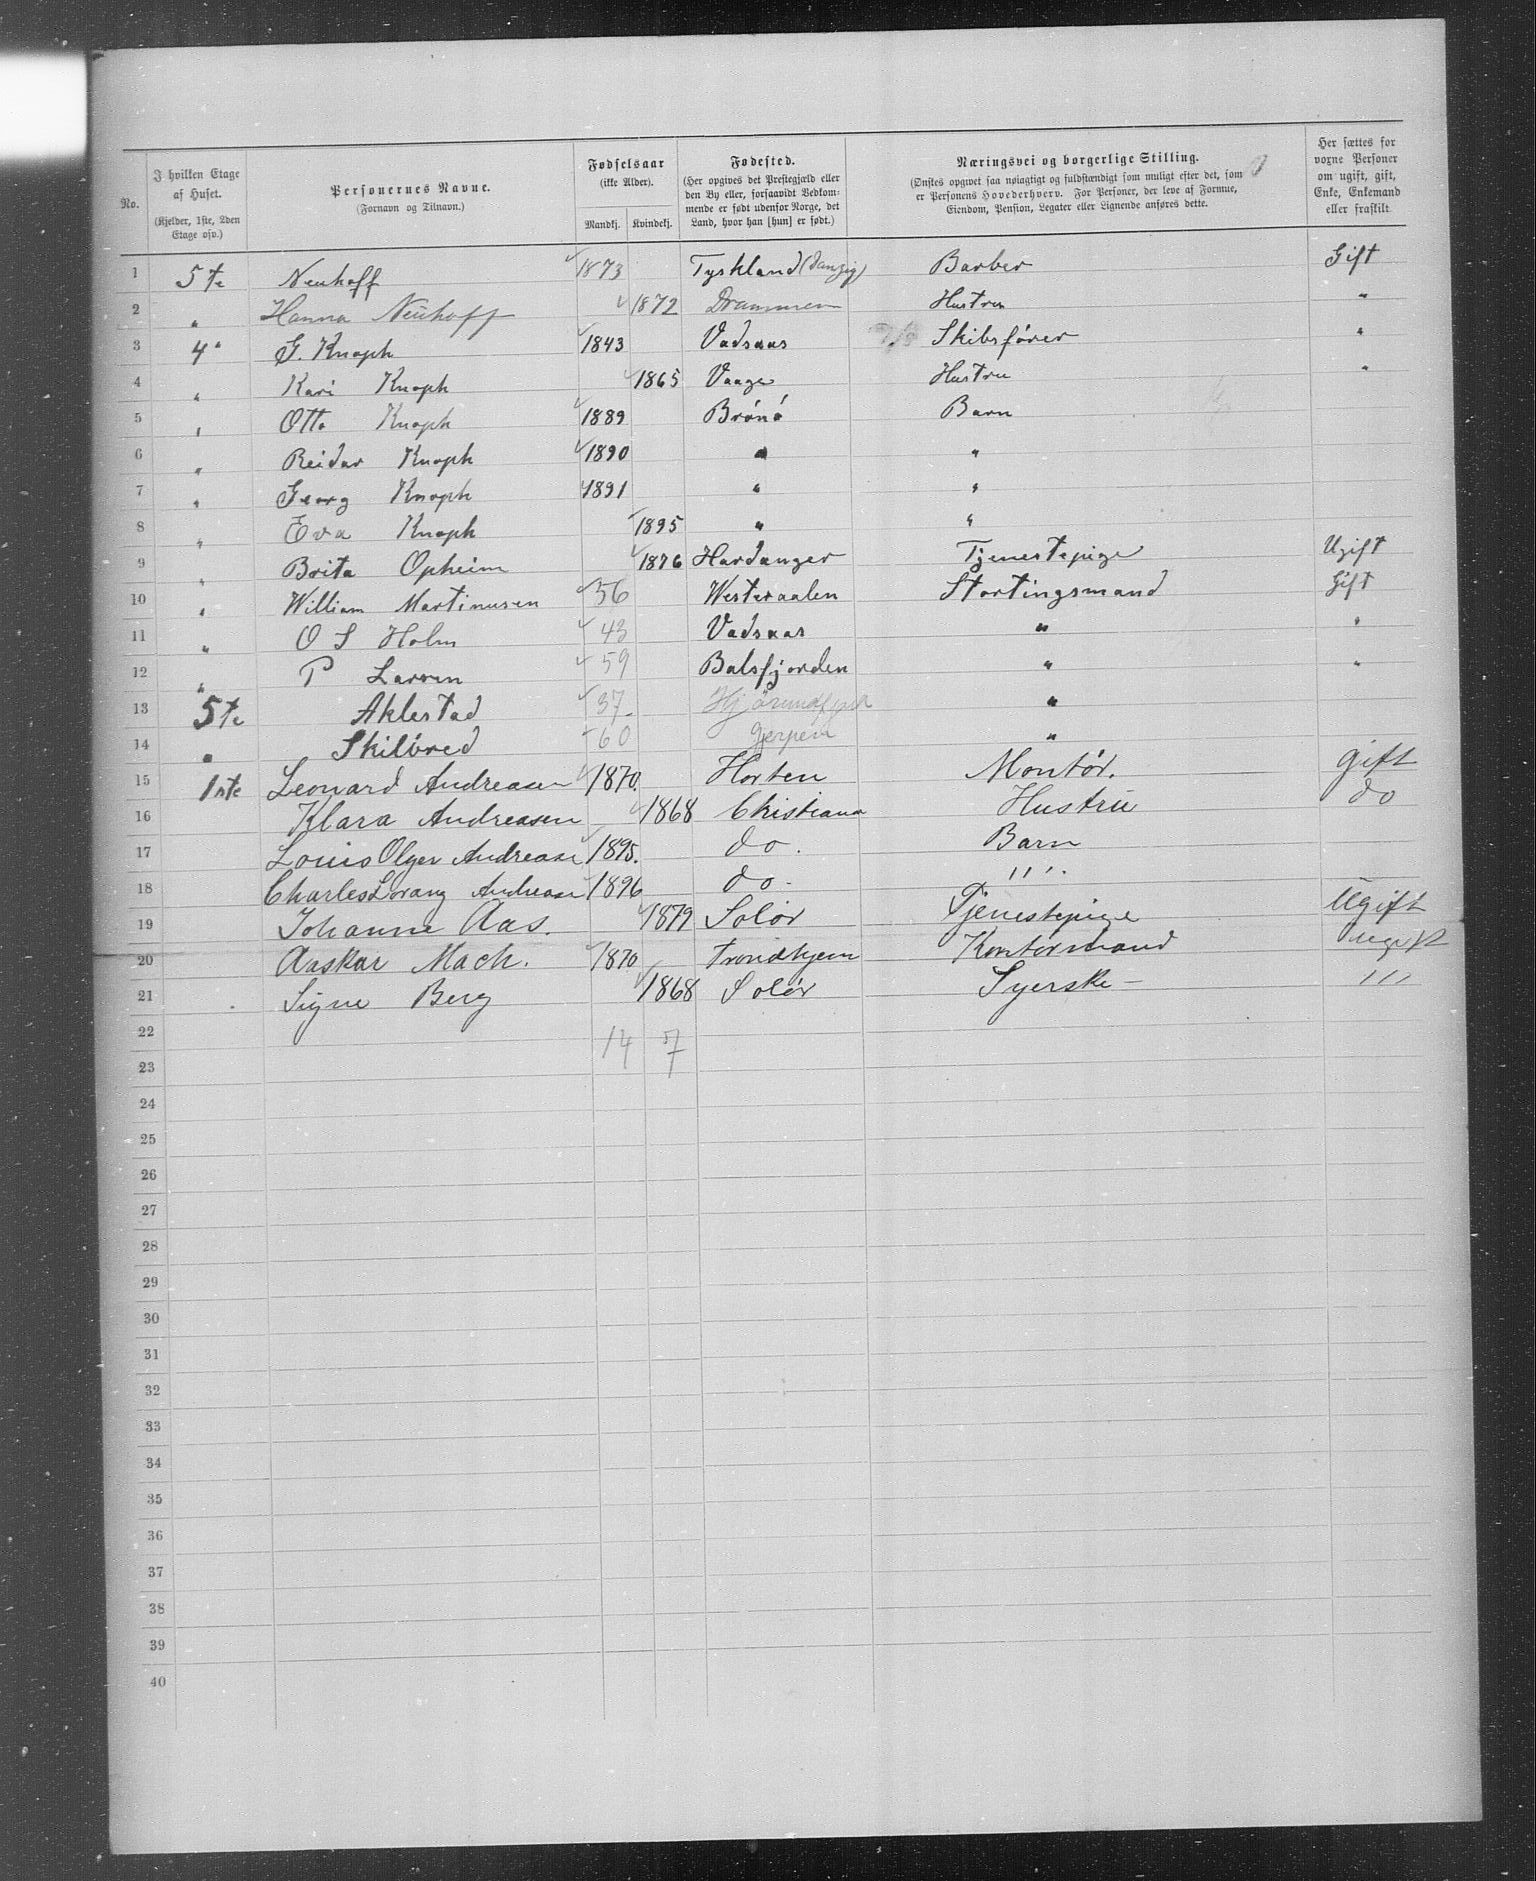 No.
I hvilken Etage af Huset.
(Kjelder, 1ste, 2den Etage osv.)
Personernes Navne.
(Fornavn og Tilnavn.)
Fødselsaar
(ikke Alder).
Mandkj. Kvindekj.
Fødested.
(Her opgives det Prestegjæld eller den By eller, forsaavidt Vedkommende er født udenfor Norge, det Land, hvor han [hun] er født.)
Næringsvei og borgerlige Stilling.
(Ønskes opgivet saa nøiagtigt og fuldstændigt som muligt efter det, som er Personens Hovederhverv. For Personer, der leve af Formue, Eiendom, Pension, Legater eller Lignende anføres dette.
Her sættes for voxne Personer om ugift, gift, Enke, Enkemand eller fraskilt.
1 5te Neuhoff 1873 Tyskland (Danzig) Barber Gift
2 " Hanna Neuhoff 1872 Drammen Hustru "
3 4" G. Knoph 1843 Vadsaas Skibsfører "
4 " Kari Knoph 1865 Vaage Hustru "
5 " Otto Knoph 1889 Brönö Barn
6 " Reidar Knoph 1890 " "
7 " Georg Knoph 1891 " "
8 " Eva Knoph 1895 " "
9 " Brita Opheim 1876 Hardanger Tjenestepige Ugift
10 " William Martinusen 56 Westeraalen Stortingsmand Gift
11 " O S Holm 43 Vadsaas " "
12 " P Larsen 59 Balsfjorden " "
13 5te Aklestad 37 "
14 " Skilbred 60 Gjerpen "
15 1ste Leonard Andreasen 1870. Horten Montör. gift
16 Klara Andreasen 1868 Christiana Hustru do
17 Louis Olger Andrease 1895. do. Barn
18 Charles Lorang Andrease 1896 do. "".
19 Johanne Aas. 1879 Solör Tjenestepige Ugift
20 Aaskar Mach. 1870 Trondhjem Kontormand ugift
21 Signe Berg 1868 Solör Syerske - "'
22
14 7
23
24
25
26
27
28
29
30
31
32
33
34
35
36
37
38
39
40